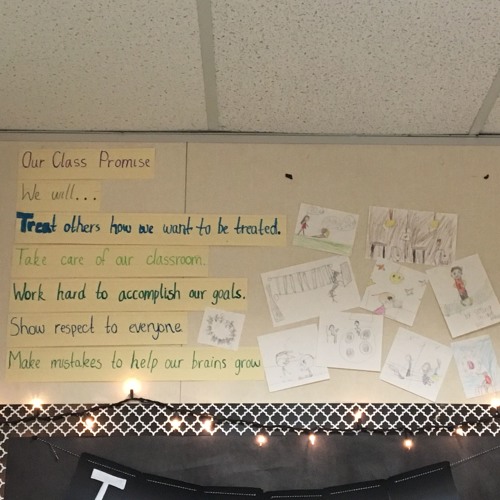 Our Class Promise
We will...
Treat others how we want to be treated.
Take care of our classroom.
Work hard to accomplish our goals.
Show respect to everyone
Make mistakes to help our brains grow
T